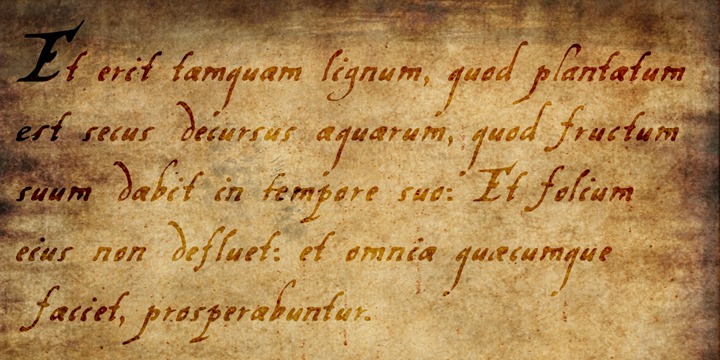 Et erit tamquam lignum, quod plantatum
est secus decursus aquarum, quod fructum
suum dabit in tempore suo: Et folium
eius non defluet: et omnia quæcumque
faciet, prosperabuntur.